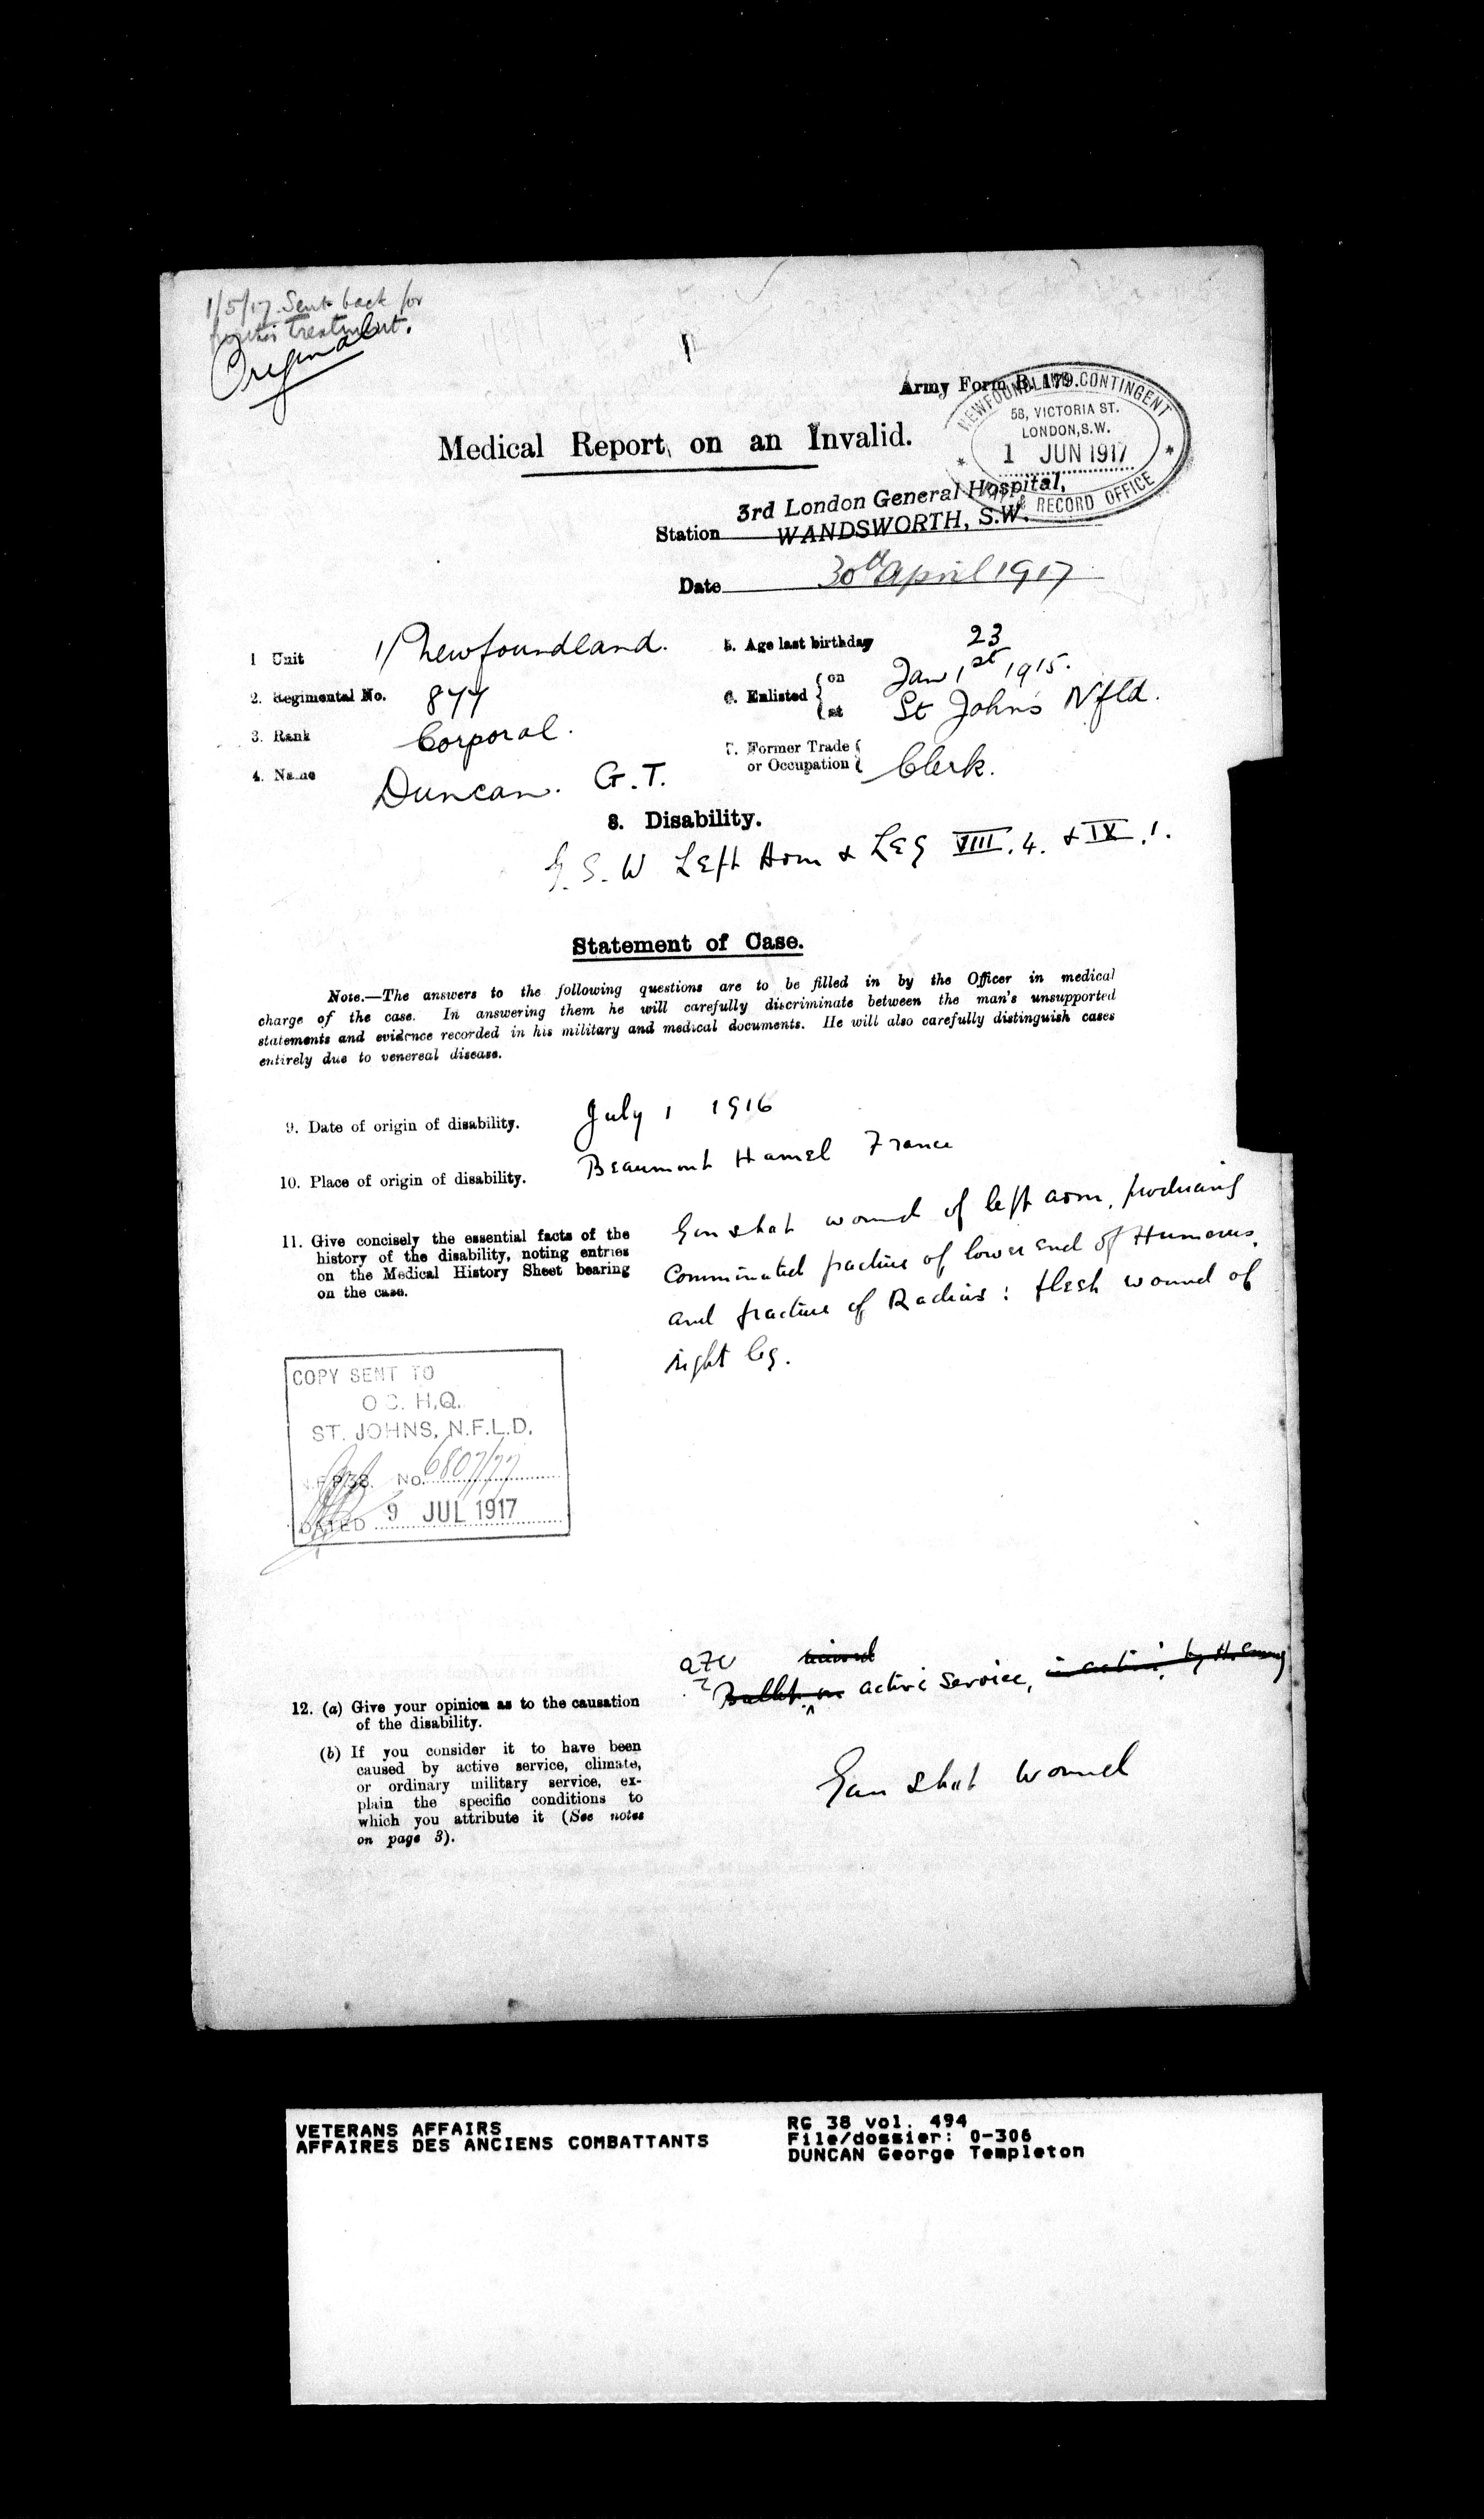 1/5/17. Sent back for
further Treatment.
Original
1
Army Form B. 179.
NEWFOUNDLAND CONTINGENT
58, VICTORIA ST.
LONDON, S.W.
1 JUN 1917
& RECORD OFFICE
Medical Report on an Invalid.
3rd London General Hospital,
Station WANDSWORTH, S.W.
Date 30th April 1917
1 Unit 1/Newfoundland.
5. Age last birthday 23
2. Regimental No. 844
6. Enlisted { on Jan 1st 1915.
at St John's Nfld.
3. Rank Corporal.
7. Former Trade or Occupation { Clerk.
4. Name Duncan. G.T.
8. Disability.
G.S.W Left Arm & Leg VIII.4. & IX.1.
Statement of Case.
Note.—The answers to the following questions are to be filled in by the Officer in medical
charge of the case. In answering them he will carefully discriminate between the man's unsupported
statements and evidence recorded in his military and medical documents. He will also carefully distinguish cases
entirely due to venereal disease.
9. Date of origin of disability. July 1 1916
10. Place of origin of disability. Beaumont Hamel France
11. Give concisely the essential facts of the
history of the disability, noting entries
on the Medical History Sheet bearing
on the case.
Gun shot wound of left arm, producing
Comminuted fracture of lower end of Humerus,
and fracture of Radius : flesh wound of
right leg.
COPY SENT TO
O.C. H.Q.
ST. JOHNS, N.F.L.D.
No. 6807/77
DATED 9 JUL 1917
12. (a) Give your opinion as to the causation
of the disability.
Bullet on active service, in action, by the enemy
(b) If you consider it to have been
caused by active service, climate,
or ordinary military service, ex-
plain the specific conditions to
which you attribute it (See notes
on page 3).
Gun shot wound
VETERANS AFFAIRS
AFFAIRES DES ANCIENS COMBATTANTS
RG 38 vol. 494
File/dossier: 0-306
DUNCAN George Templeton